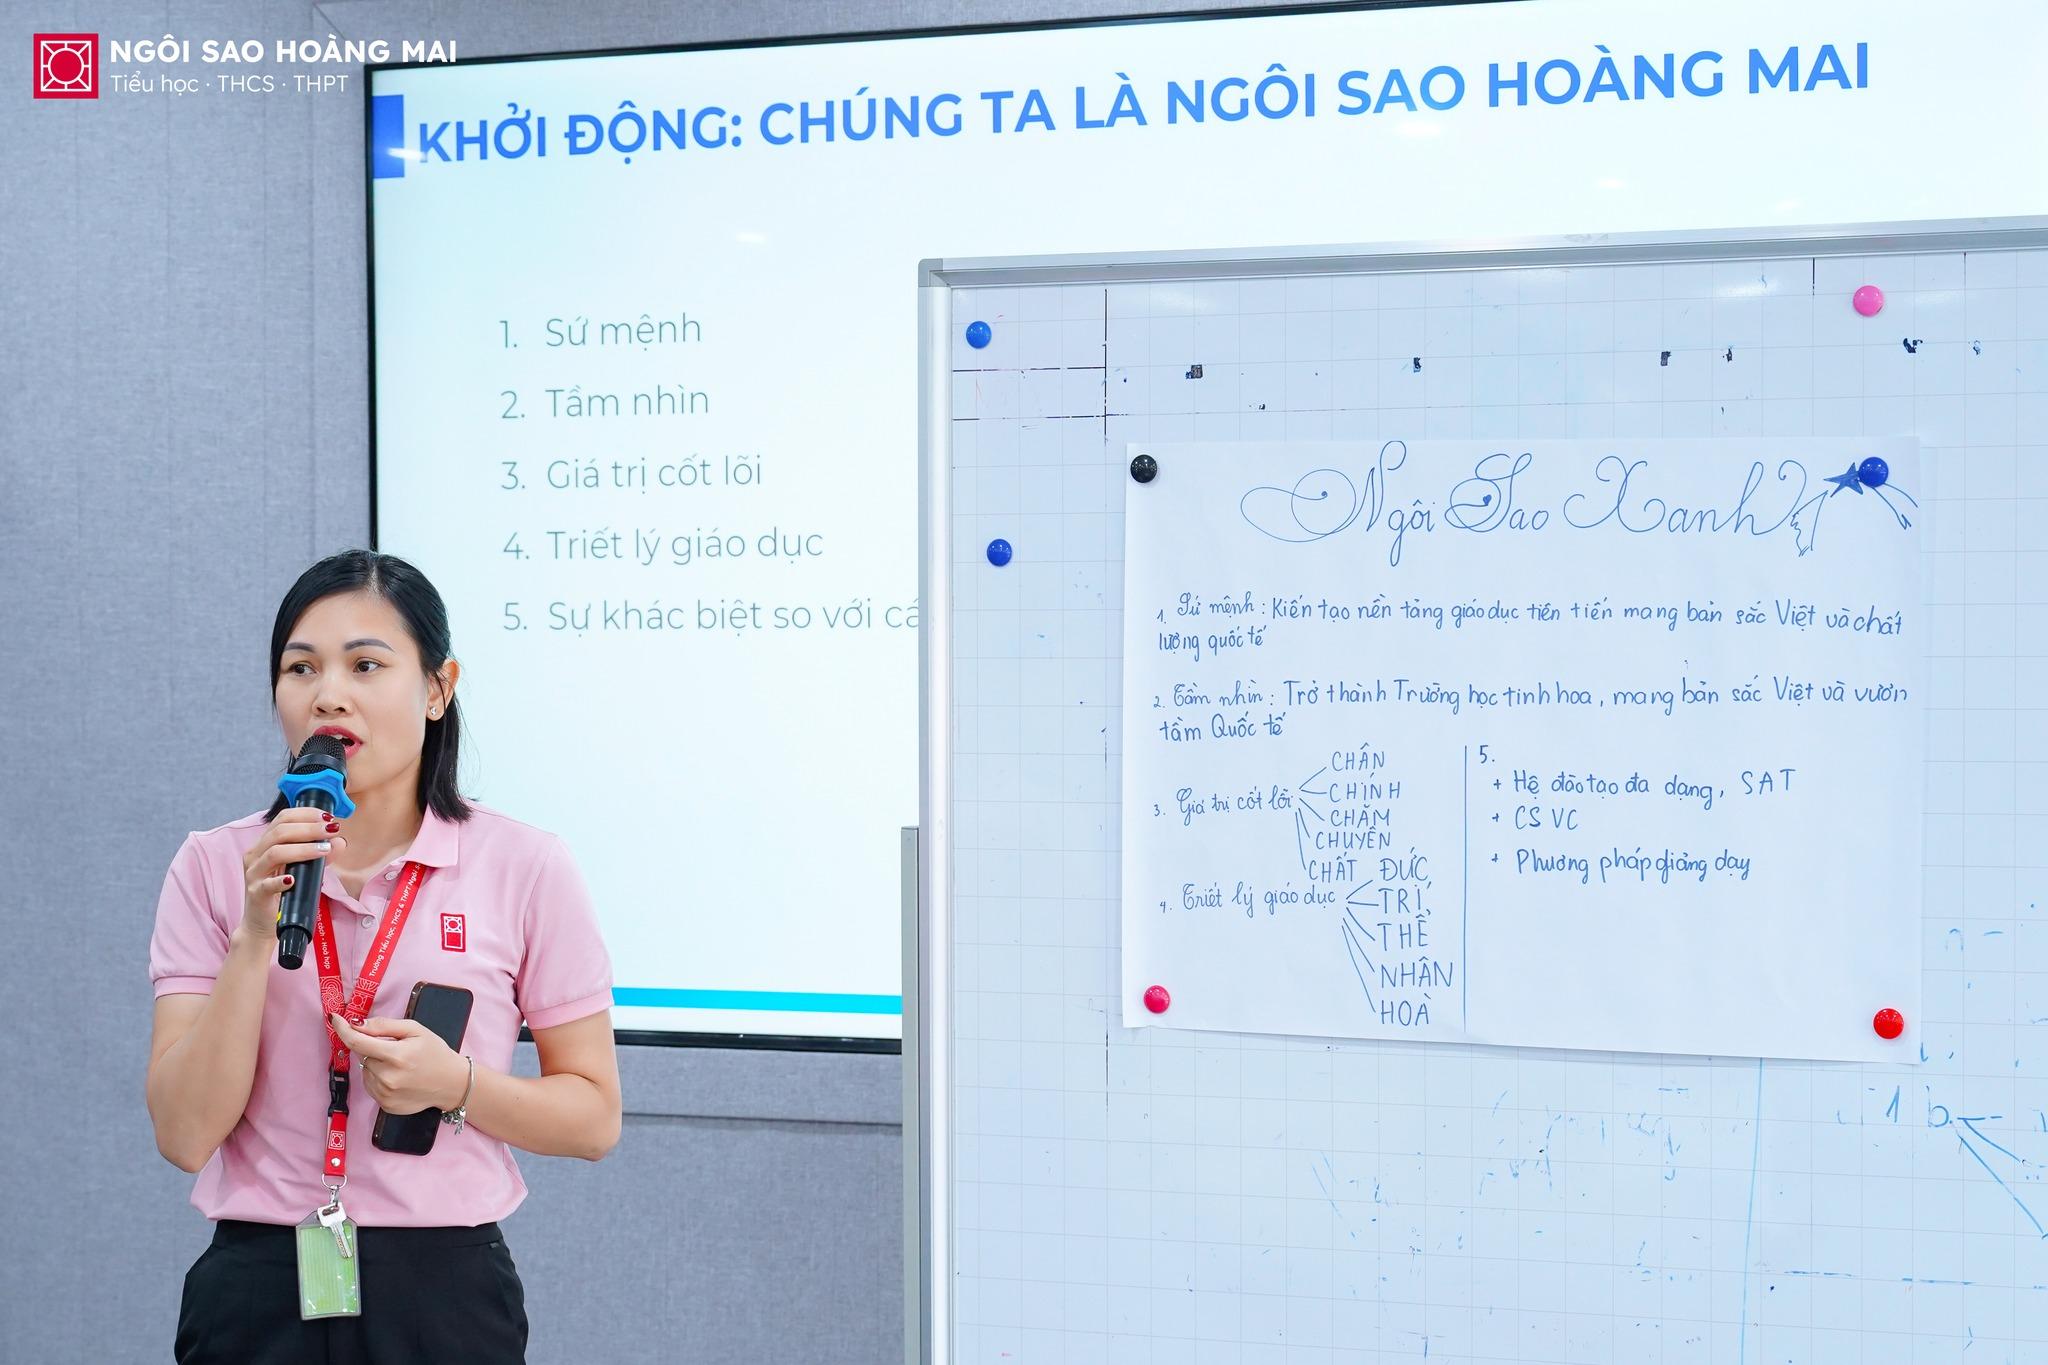 NGÔI SAO HOÀNG MAI
Tiểu học · THCS · THPT
KHỞI ĐỘNG: CHÚNG TA LÀ NGÔI SAO HOÀNG MAI
1. Sứ mệnh
2. Tầm nhìn
3. Giá trị cốt lõi
4. Triết lý giáo dục
5. Sự khác biệt so với cá
Ngôi Sao Xanh
1. Sứ mệnh : Kiến tạo nền tảng giáo dục tiên tiến mang bản sắc Việt và chất
lượng quốc tế
2. Tầm nhìn : Trở thành Trường học tinh hoa, mang bản sắc Việt và vươn
tầm Quốc tế
3. Giá trị cốt lõi
CHÂN
CHÍNH
CHĂM
CHUYÊN
CHẤT
4. Triết lý giáo dục
ĐỨC
TRÍ
THỂ
NHÂN
HOÀ
5.
+ Hệ đào tạo đa dạng, SAT
+ CSVC
+ Phương pháp giảng dạy
1 b.
Trường Tiểu học, THCS & THPT Ngôi